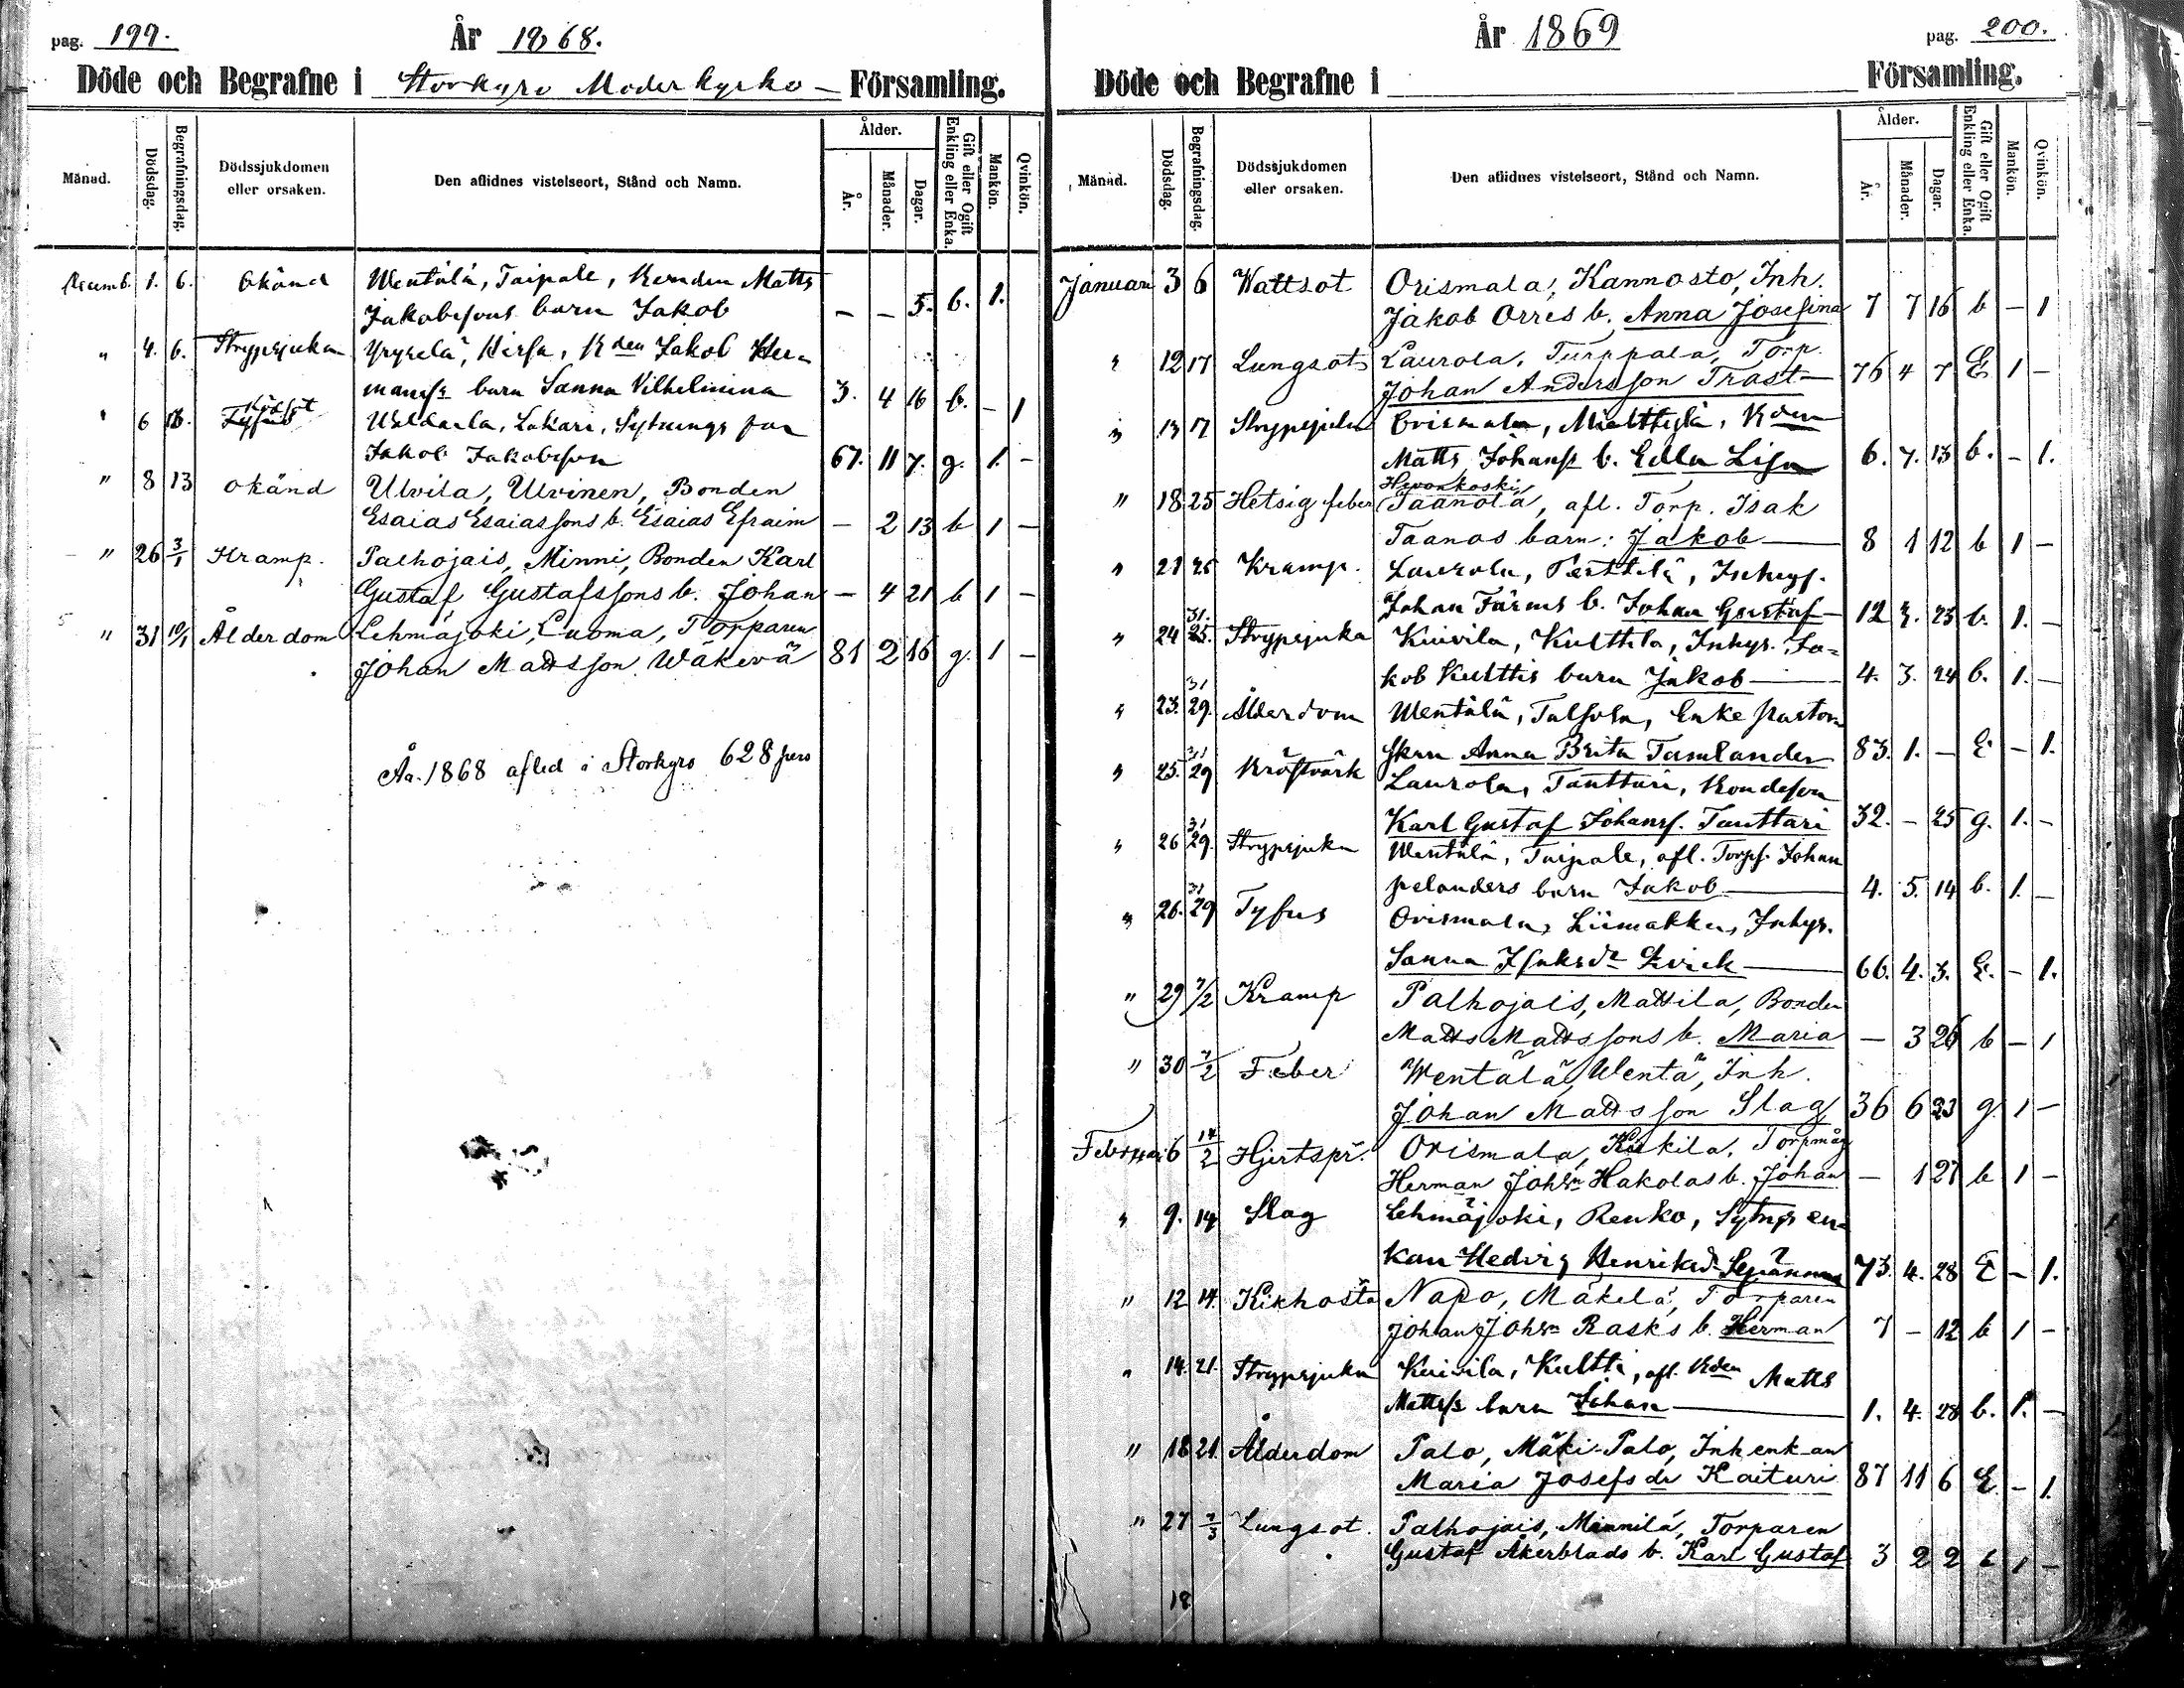 pag. 199.
År 1868.
Döde och Begrafne i Storkyro Moderkyrko Församling.
Månad. Dödsdag. Begrafningsdag. Dödssjukdomen eller orsaken. Den aflidnes vistelseort, Stånd och Namn. Ålder. År. Månader. Dagar. Gift eller Ogift Enkling eller Enka. Mankön. Qvinkön.
Decemb. 1. 6. Okänd Wentälä, Taipale, Bonden Matts
Jakobssons barn Jakob — — 5. b. 1.
" 4. 6. Strypsjuka Yryselä, Hirfa, Bden Jakob Her-
manss barn Sanna Vilhelmina 3. 4 16 b. — 1
" 6 Lakari, Sytnings
Jakob Jakobsson 67. 11 7. g. 1. —
" 8 13 okänd Ulvila, Ulvinen, Bonden
Esaias Esaiassons b. Esaias Efraim — 2 13 b 1 —
" 26 3/1 Kramp. Palhojais, Minni, Bonden Karl
Gustaf Gustafssons b. Johan — 4 21 b 1 —
" 31 10/1 Ålderdom Lehmäjoki, Luoma, Torparen
Johan Mattsson Wäkevä 81 2 16 g. 1 —
År 1868 afled i Storkyro 628 pers
pag. 200.
År 1869
Döde och Begrafne i Församling.
Månad. Dödsdag. Begrafningsdag. Dödssjukdomen eller orsaken. Den aflidnes vistelseort, Stånd och Namn. Ålder. År. Månader. Dagar. Gift eller Ogift Enkling eller Enka. Mankön. Qvinkön.
Januari 3 6 Wattsot Orismala, Kannosto, Inh.
Jakob Orres b. Anna Josefina 7 7 16 b — 1
" 12 17 Lungsot Laurola, Turppala, Torp.
Johan Andersson Trast 76 4 7 E 1 —
" 13 17 Strypsjuka Orismala, Mattila, Bden
Matts Johanss b. Edla Lisa 6. 7. 13 b. — 1.
Hevonkoski
" 18 25 Hetsig feber Taanola, afl. Torp. Isak
Taanos barn: Jakob 8 1 12 b 1 —
" 21 25 Kramp. Laurola, Perttilä, Inhys.
Johan Färms b. Johan Gustaf 12 3. 23 b. 1. —
31.
" 24 25. Strypsjuka Kuivila, Kulttila, Inhys. Ja-
kob Kulttis barn Jakob 4. 3. 24 b. 1. —
31
" 23. 29. Ålderdom Wentälä, Talsola, Enke pastor
skan Anna Brita Tamlander 83. 1. — E — 1.
31
" 25. 29 Kräftvärk Laurola, Tanttari, Bondeson
Karl Gustaf Johanss. Tanttari 32. — 25 g. 1. —
31
" 26 29. Strypsjuka Wentälä, Taipale, afl. Torp. Johan
pelanders barn Jakob 4. 5. 14 b. 1. —
31
" 26. 29 Tyfus Orismala, Liimakka, Inhys.
Sanna Isaksdr 66. 4. 3. E. — 1.
" 29 7/2 Kramp Palhojais, Mattila, Bonden
Matts Mattssons b. Maria — 3 26 b — 1
" 30 7/2 Feber Wentälä, Wentä, Inh.
Johan Mattsson Slag 36 6 23 g. 1 —
Februari 6 14/2 Hjertspr. Orismala, Kiikila, Torpmåg
Herman Johsn Hakolas b. Johan — 1 27 b 1 —
" 9. 14 Slag Lehmäjoki, Renko, Sytngs en-
kan Hedvig Henriksd. 73. 4. 28 E — 1.
" 12 14. Kikhosta Napo, Mäkelä, Torparen
Johan Johsn Rasks b. Herman 7 — 12 b 1 —
" 14. 21. Strypsjuka Kuivila, Kultti, afl. Bden Matts
Mattss barn Johan 1. 4. 28 b. 1. —
" 18 21. Ålderdom Palo, Mäki-Palo, Inhenkan
Maria Josefsdr Kaituri 87 11 6 E — 1.
" 27 7/3 Lungsot. Palhojais, Minnilä, Torparen
Gustaf Åkerblads b. Karl Gustaf 3 2 2 b 1 —
18